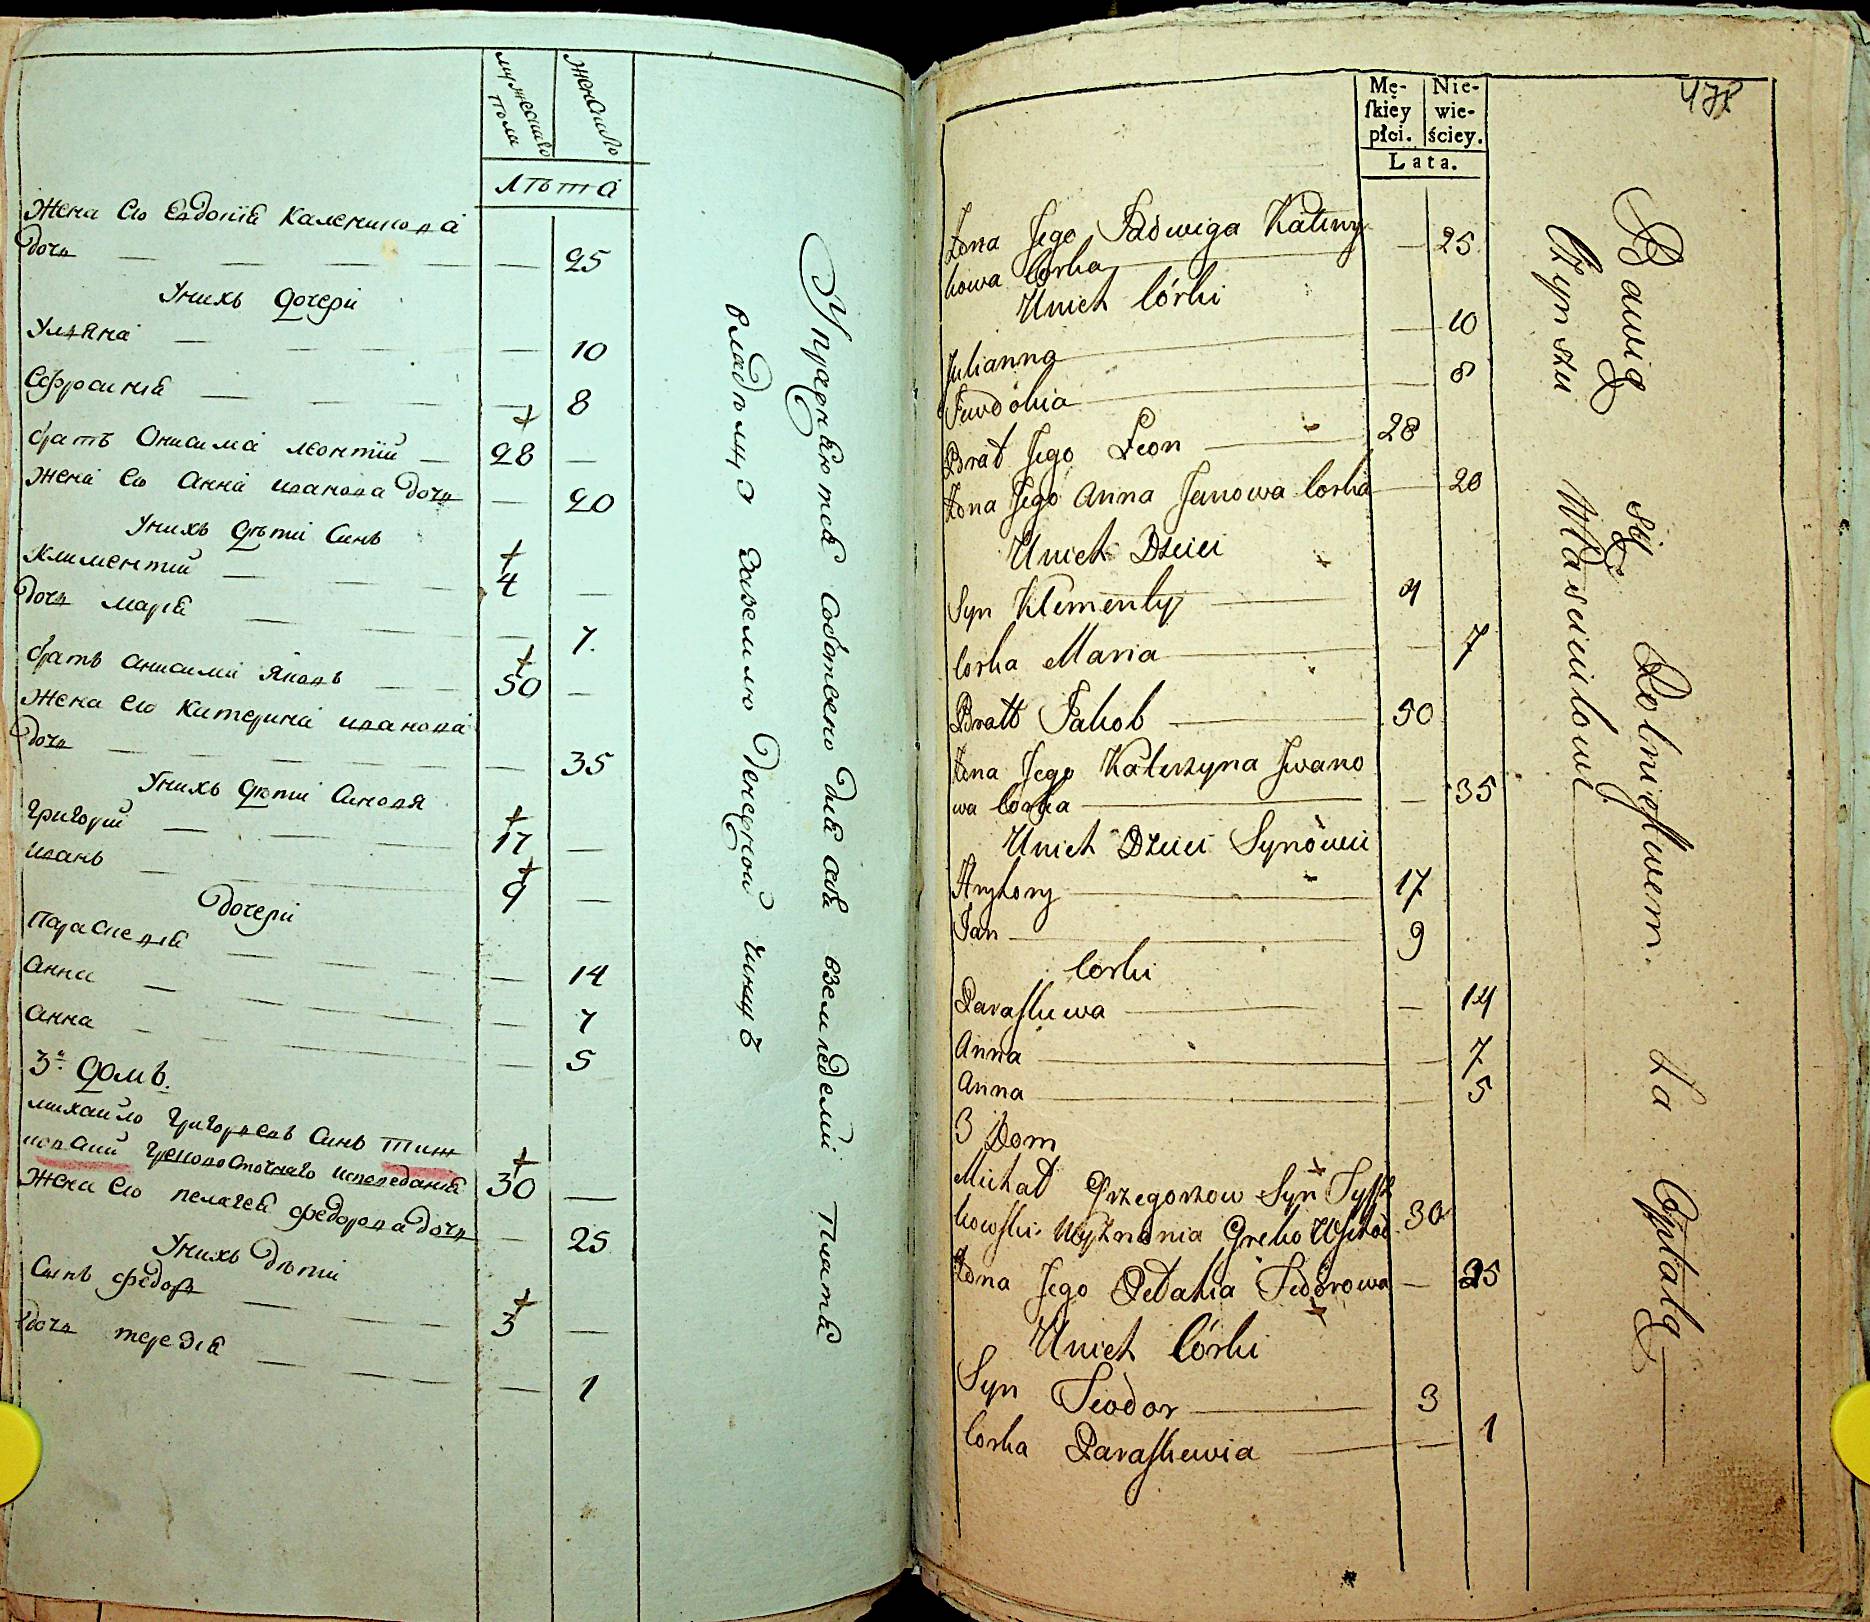 мужескаго пола
женскаго
лѣта
жена его Евдокiя Каленикова
дочь — 25
У нихъ дочери
Ульяна — 10
Ефросинiя — 8
братъ Онисима леонтiй — 28 —
жена его Анна иванова дочь — 20
У нихъ дѣти Синъ
Климентiй — 4 —
дочь марiя — 7.
братъ анисима Яковъ — 50 —
жена его Катерина иванова
дочь — 35
У нихъ дѣти Синовя
григорiй — 17 —
иванъ — 9 —
дочери
Парасковiя — 14
анна — 7
анна — 5
3й домъ.
михайло григорьевъ Синъ тиш
ковскiй грековосточнаго исповеданiя 30 —
жена его пелагея федорова дочь — 25
У нихъ дѣти
Синъ федоръ — 3 —
дочь — 1
Упражняются собственно для себя вземледелiи платя
владѣлцу заземлю денежной чиншъ
478
Mę-
skiey
płci.
Nie-
wie-
ściey.
Lata.
Żona Jego Jadwiga Kaliny
kowa Corka — 25
Unich Córki
Julianna — 10
Fewdokia — 8
Brat Jego Leon — 28
Żona Jego Anna Janowa Corka — 20
Unich Dzieci
Syn Klementy — 4
Corka Maria — 7
Bratt Jakob — 50
Żona Jego Katerzyna Iwano
wa Corka — 35
Unich Dzieci Synowie
Antony — 17
Jan — 9
Corki
Paraskiewa — 14
Anna — 7
Anna — 5
3 Dom
Michał Grzegorzow Syn Tysz
kowski Wyznania Greko Wschod. 30
Żona Jego Pełahia Fedorowa — 25
Unich Córki
Syn Fiodor — 3
Corka Paraskewia — 1
Bawią się Rolnictwem. Za Opłatą
Czynszu Właścicielowi